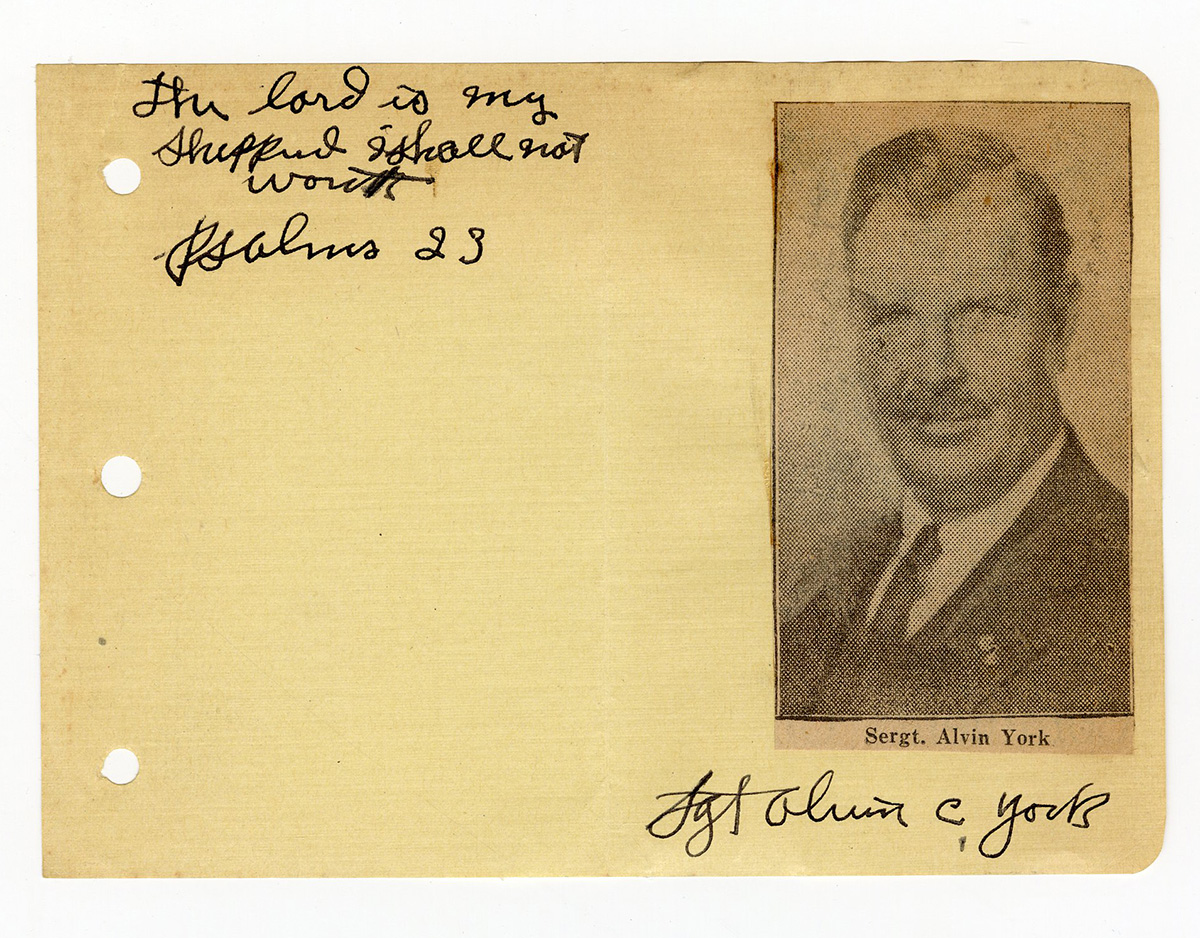 The lord is my
Sheppard i shall not
wont
Psalms 23
Sergt. Alvin York
Sgt Alvin C York